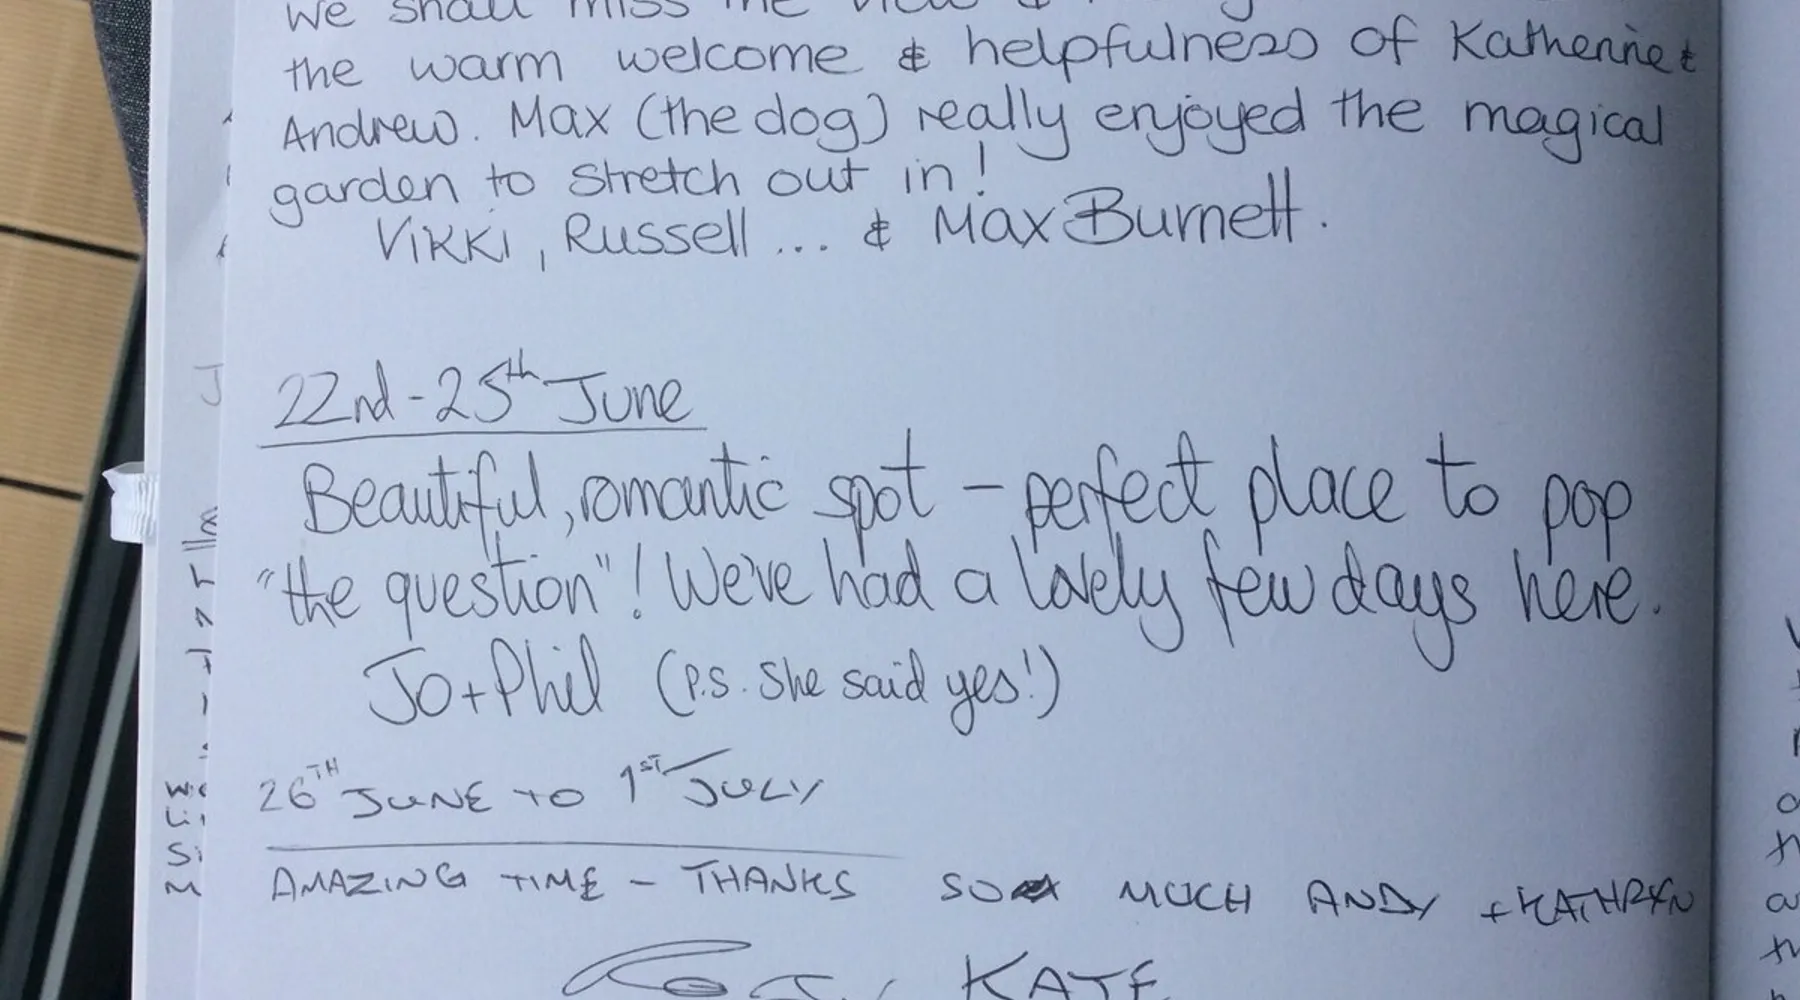 We shall miss the view &
the warm welcome & helpfulness of Katherine &
Andrew. Max (the dog) really enjoyed the magical
garden to stretch out in!
Vikki, Russell ... & Max Burnett.
22nd - 25th June
Beautiful, romantic spot - perfect place to pop
"the question"! We've had a lovely few days here.
Jo + Phil (P.S. She said yes!)
26TH JUNE TO 1ST JULY
AMAZING TIME - THANKS SO MUCH ANDY + KATHRYN
KATE